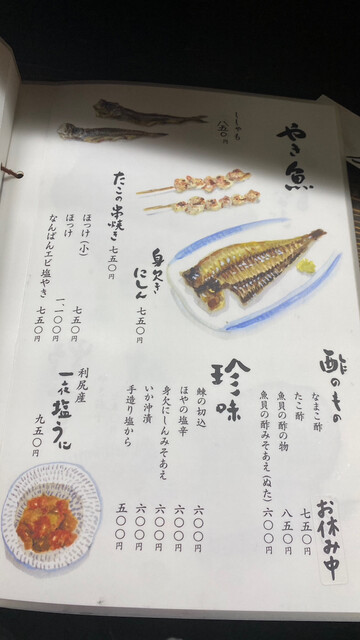 やき魚
ししゃも 八五〇円
たこの串焼き 七五〇円
身欠きにしん 七五〇円
ほっけ(小) 七五〇円
ほっけ 一、一〇〇円
なんばんエビ塩やき 七五〇円
酢のもの
なまこ酢 お休み中
たこ酢 七五〇円
魚貝の酢の物 八五〇円
魚貝の酢みそあえ(ぬた) 六〇〇円
珍味
鰊の切込 六〇〇円
ほやの塩辛 六〇〇円
身欠にしんみそあえ 六〇〇円
いか沖漬 六〇〇円
手造り塩から 五〇〇円
利尻産
一夜塩うに 九五〇円